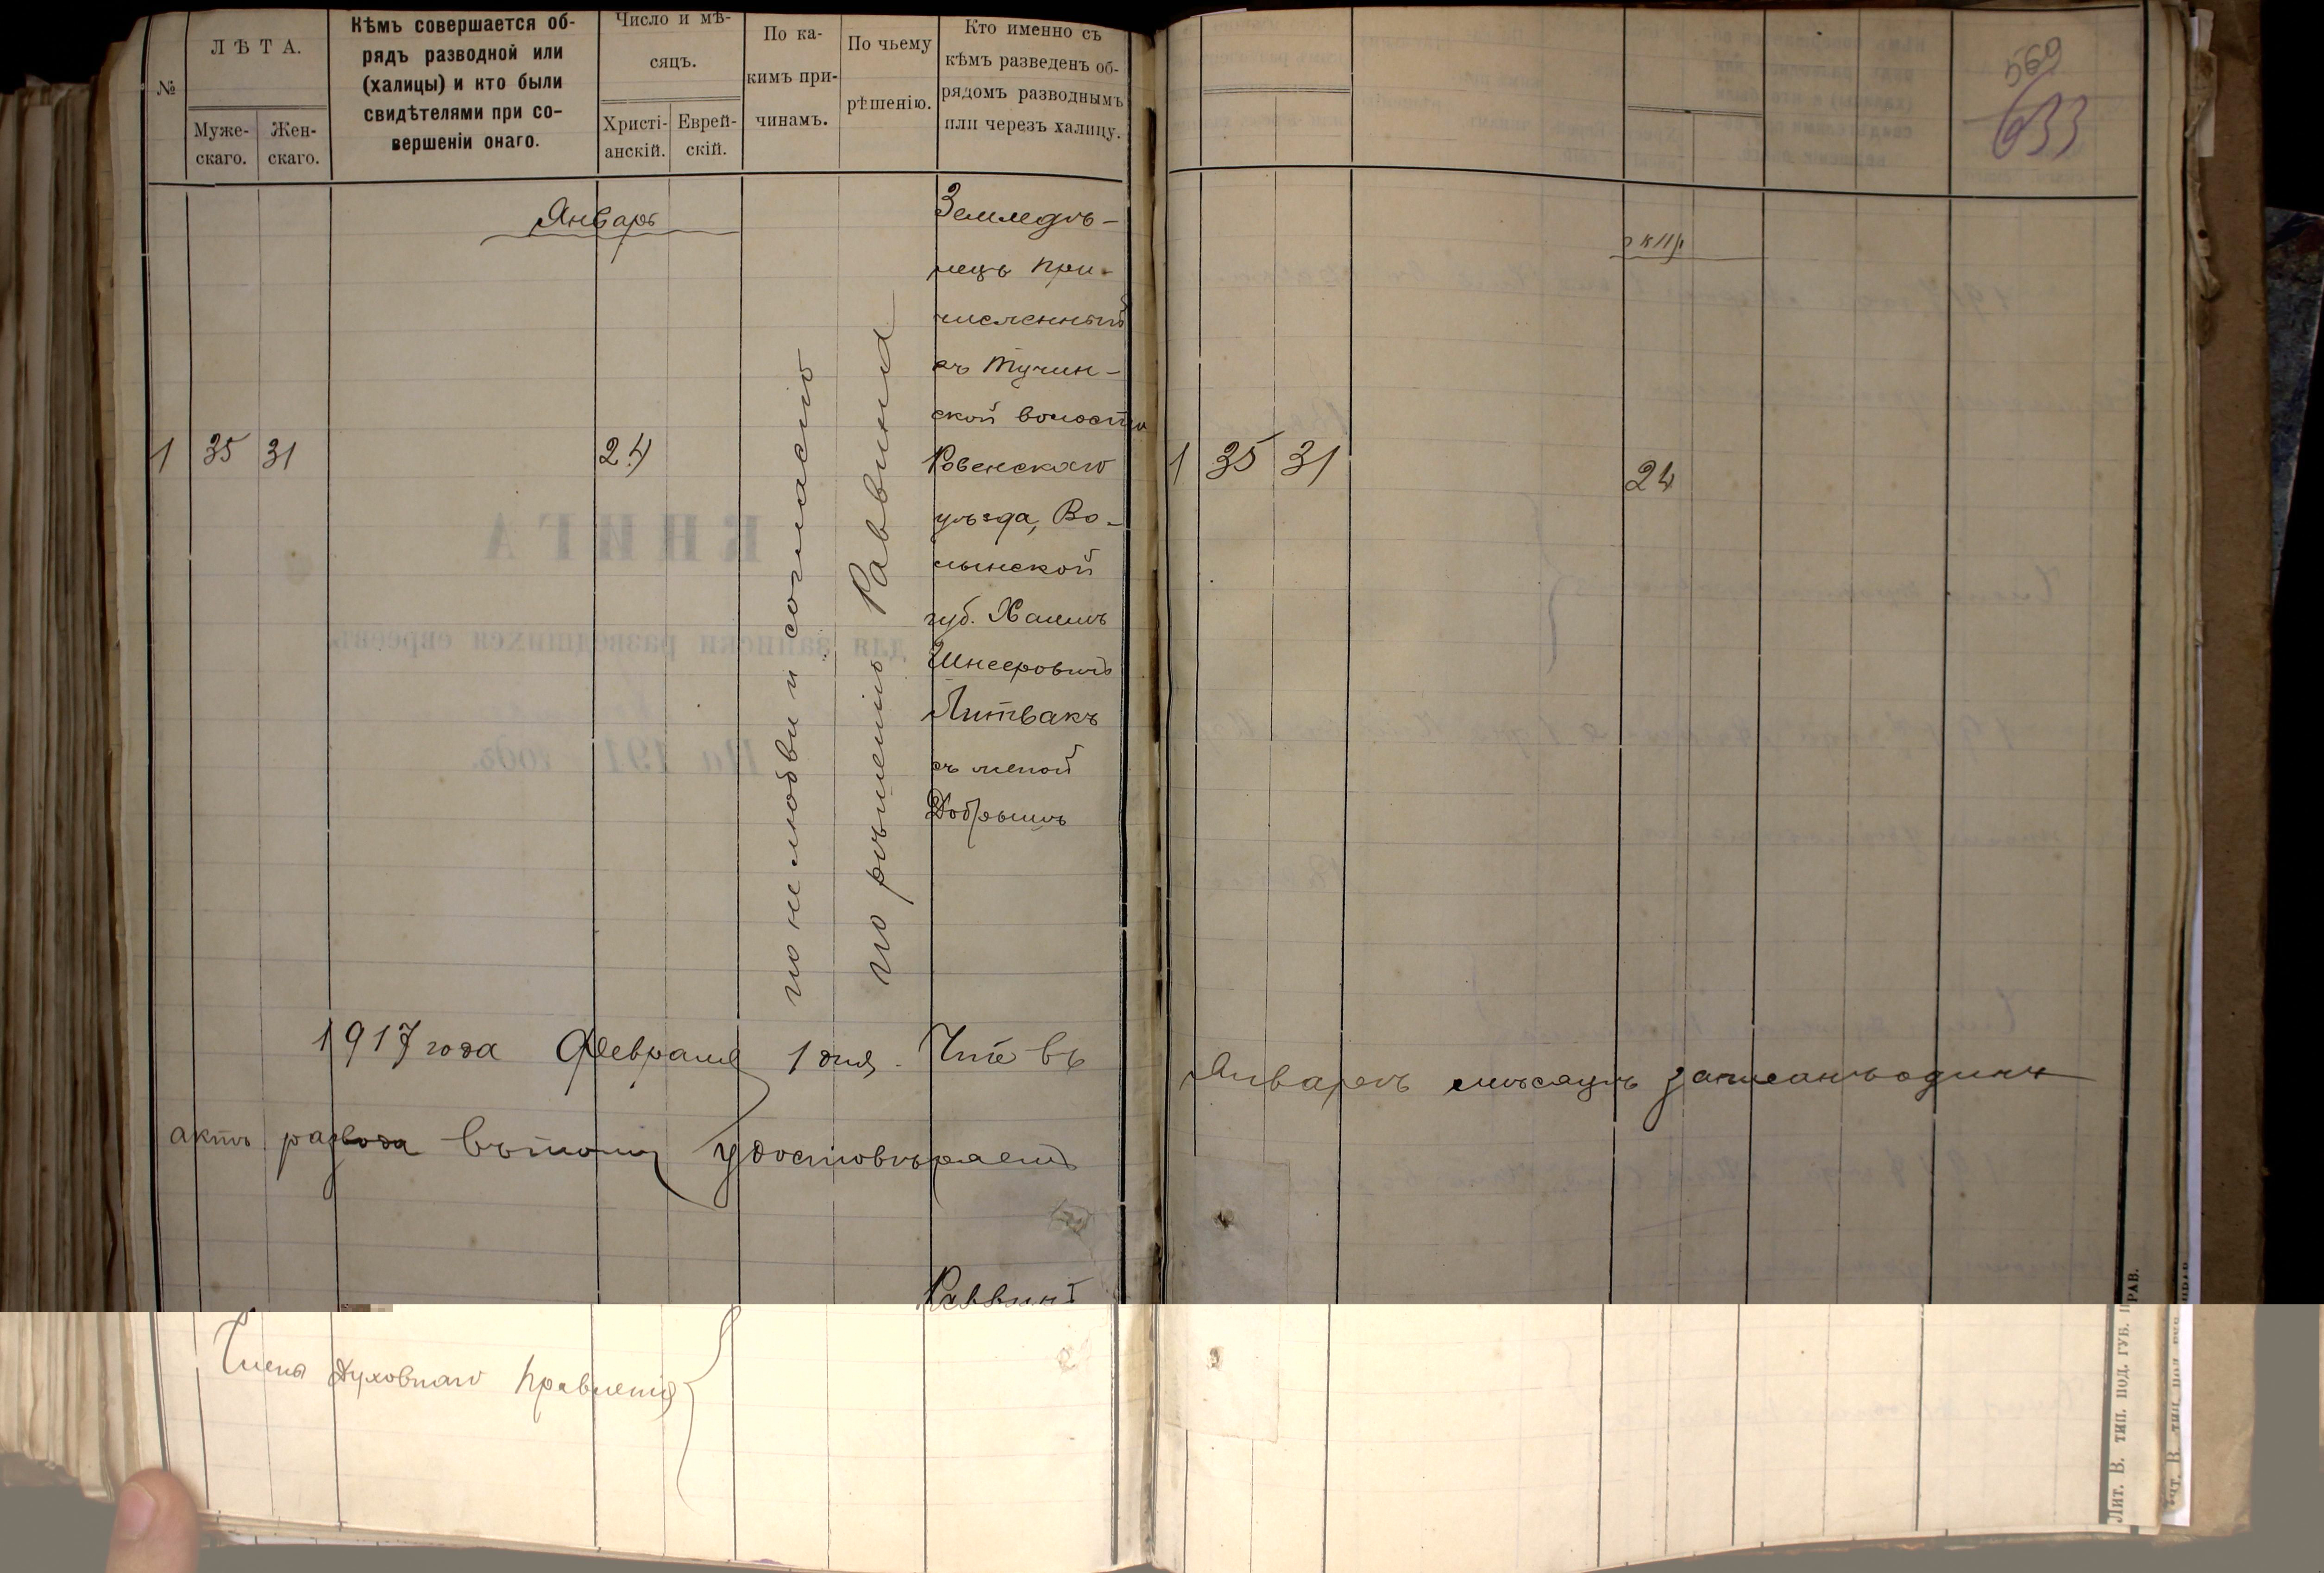 №
ЛѢТА.
Муже-
скаго.
Жен-
скаго.
Кѣмъ совершается об-
рядъ разводной или
(халицы) и кто были
свидѣтелями при со-
вершеніи онаго.
Число и мѣ-
сяцъ.
Христі-
анскій.
Еврей-
скій.
По ка-
кимъ при-
чинамъ.
По чьему
рѣшенію.
Кто именно съ
кѣмъ разведенъ об-
рядомъ разводнымъ
или черезъ халицу.
Январь
1 35 31 24
по нелюбви и согласію
по рѣшенію Раввина
Земледѣ-
лецъ при-
численный
къ Тучин-
ской волости
Ровенскаго
уѣзда, Во-
лынской
губ. Хаимъ
Шнееровичъ
Литвакъ
съ женой
Добрышъ
1917 года Февраля 1 дня. Что въ
актъ развода въ томъ удостовѣряетъ
Раввинъ
Члены Духовнаго Правленія
569
633
1 35 31 24
Январѣ мѣсяцѣ записанъ одинъ
Лит. В. тип. под. губ. прав.